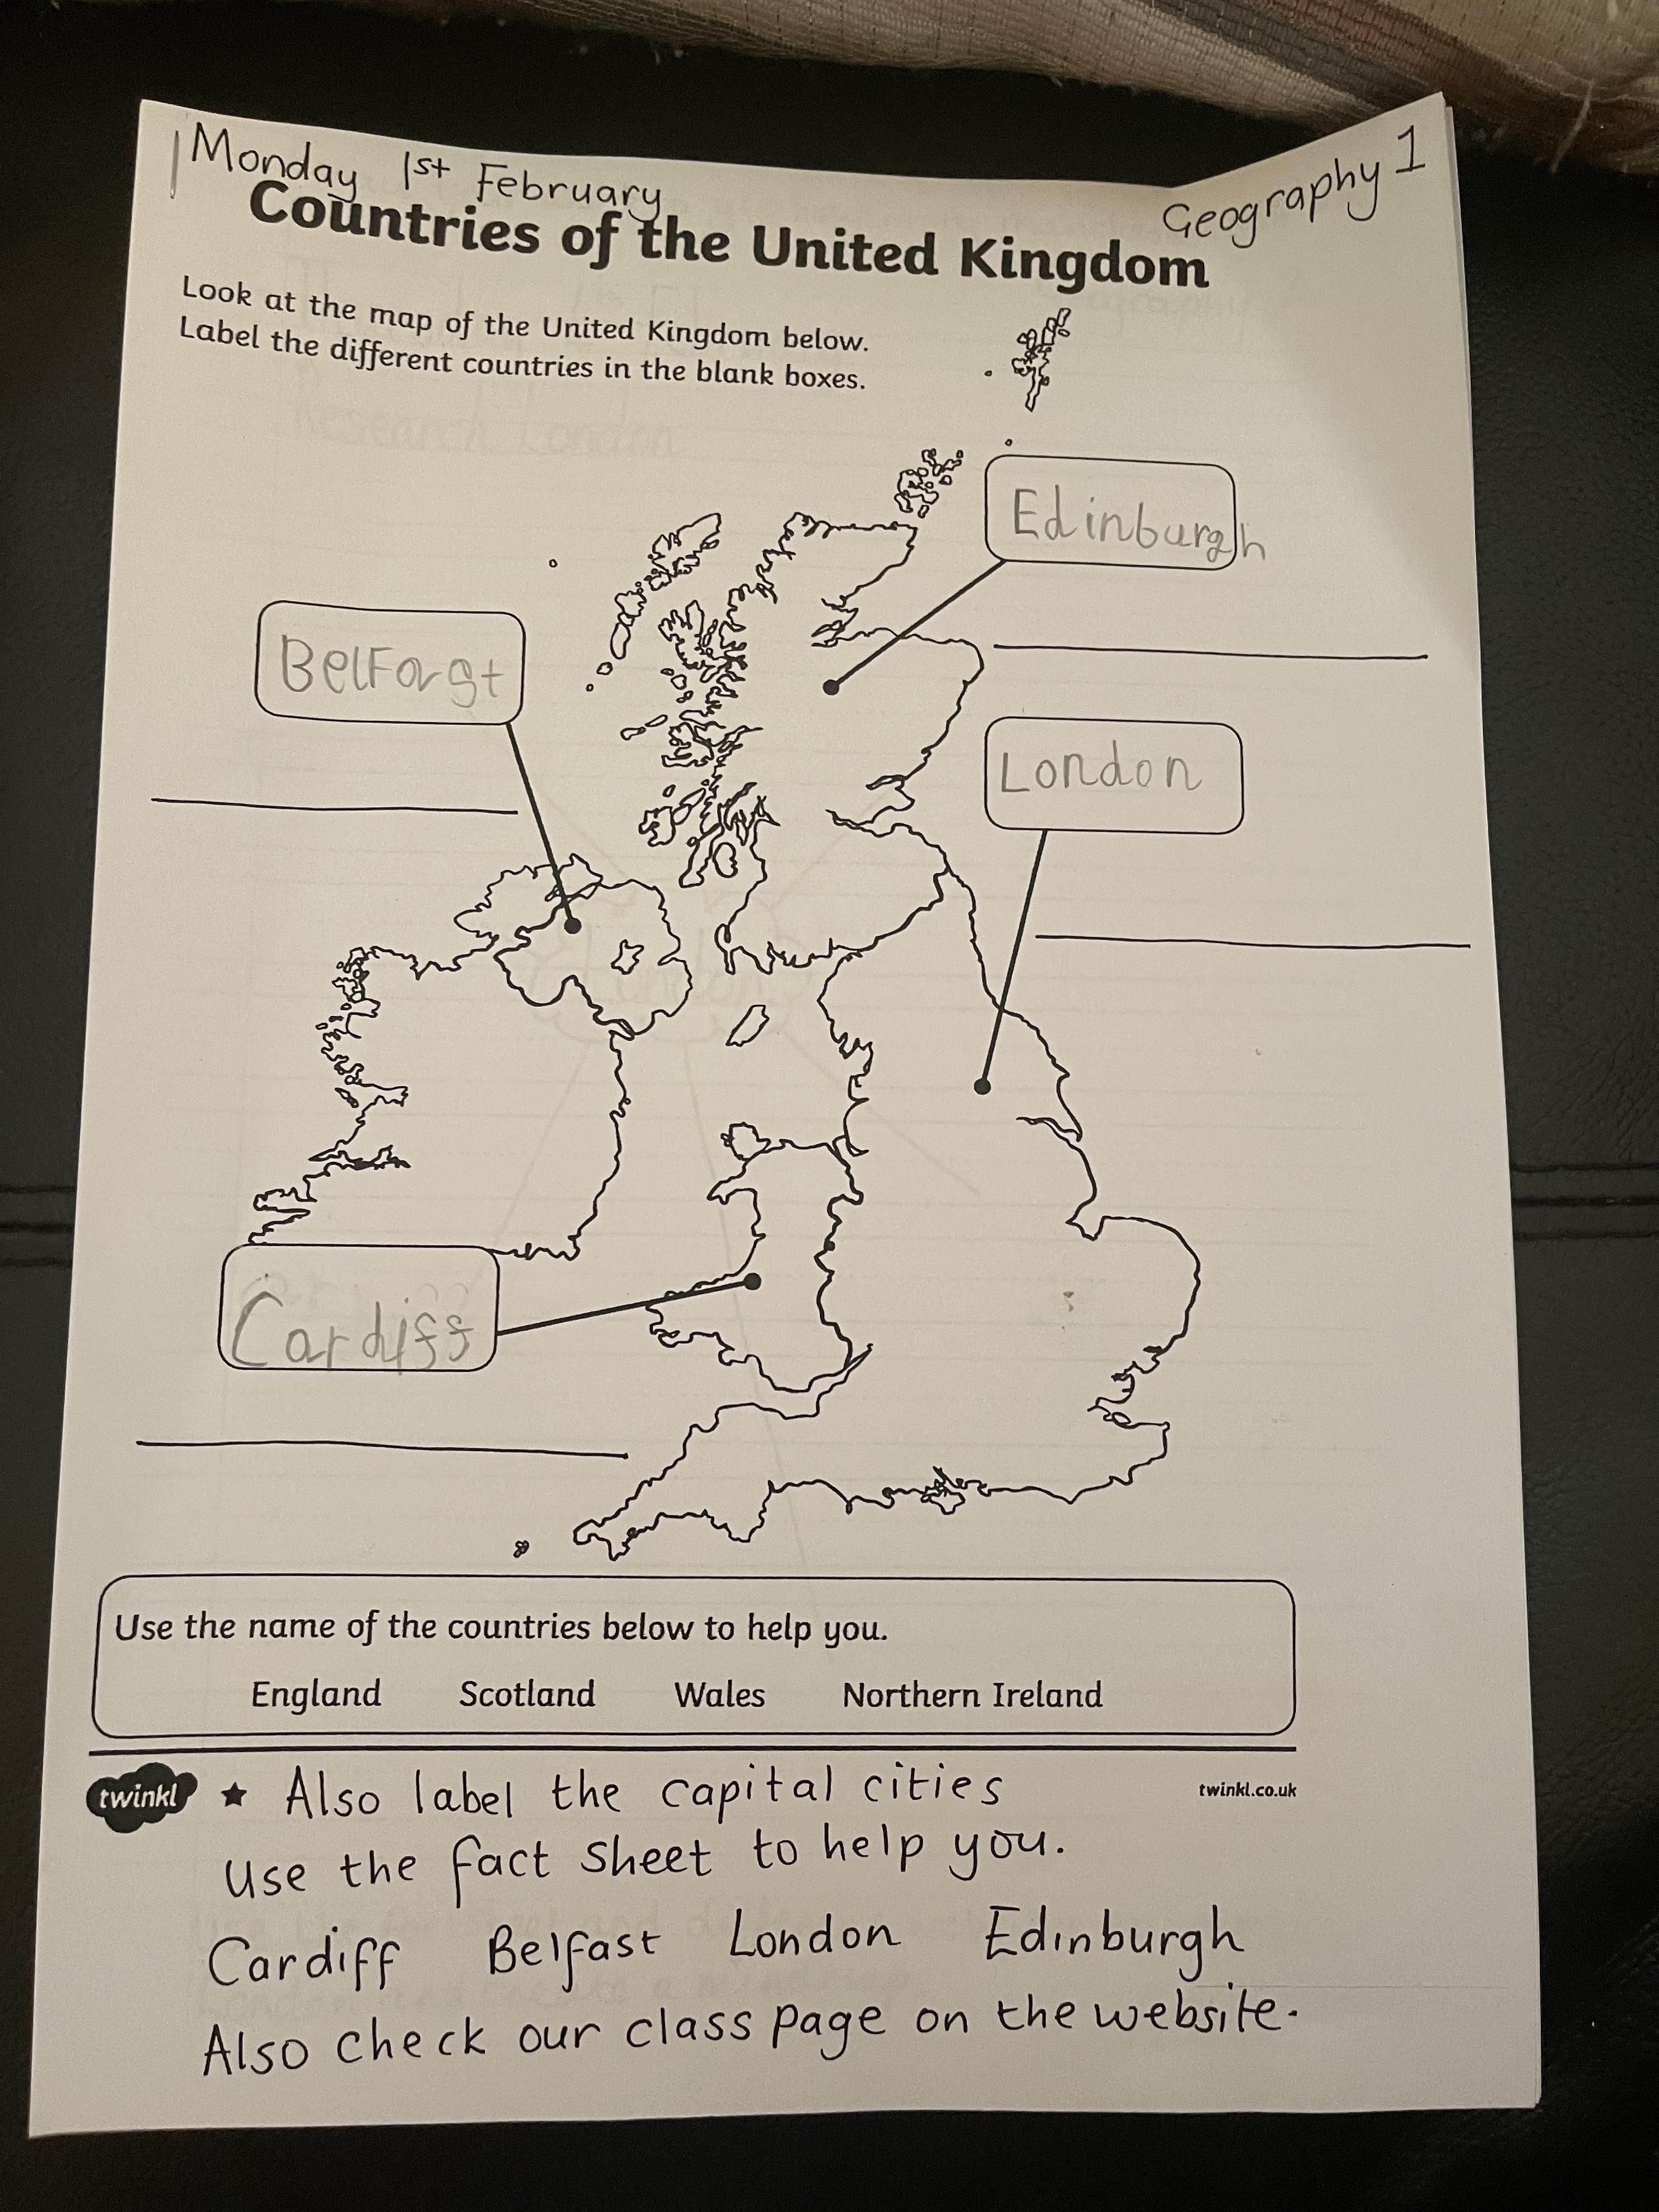 Monday 1st February
Geography 1
Countries of the United Kingdom
Look at the map of the United Kingdom below.
Label the different countries in the blank boxes.
Edinburgh
Belforst
London
Cardiff
Use the name of the countries below to help you.
England Scotland Wales Northern Ireland
twinkl
★ Also label the capital cities
twinkl.co.uk
Use the fact sheet to help you.
Cardiff Belfast London Edinburgh
Also check our class page on the website.